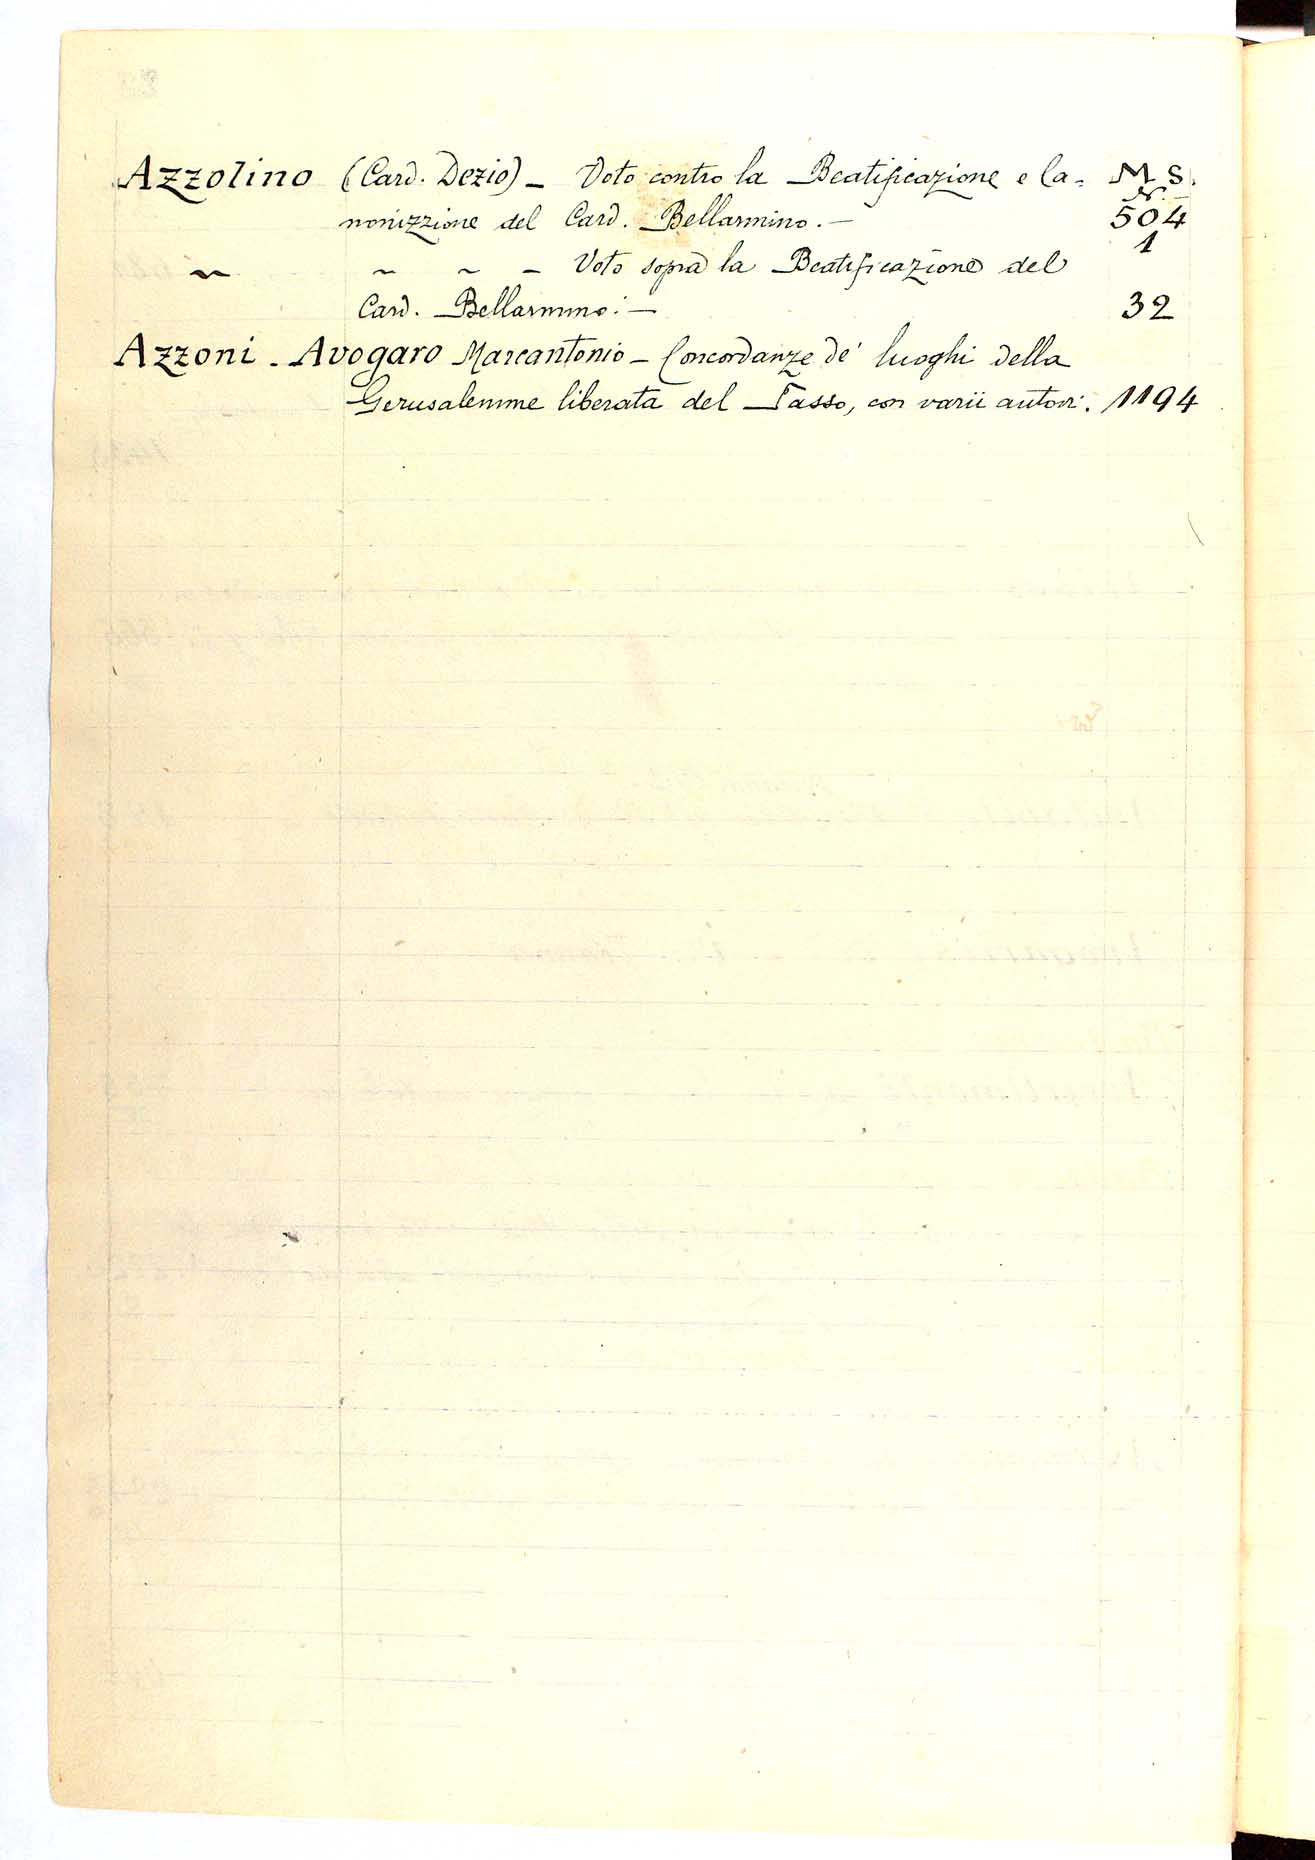 Azzolino (Card. Dezio) – Voto contro la Beatificazione e Ca= M S.
N.
nonizzione del Card. Bellarmino. – 504
1
~ ~ ~ – Voto sopra la Beatificazione del
Card. Bellarmino: – 32
Azzoni - Avogaro Marcantonio – Concordanze de' luoghi della
Gerusalemme liberata del Tasso, con varii autori. 1194